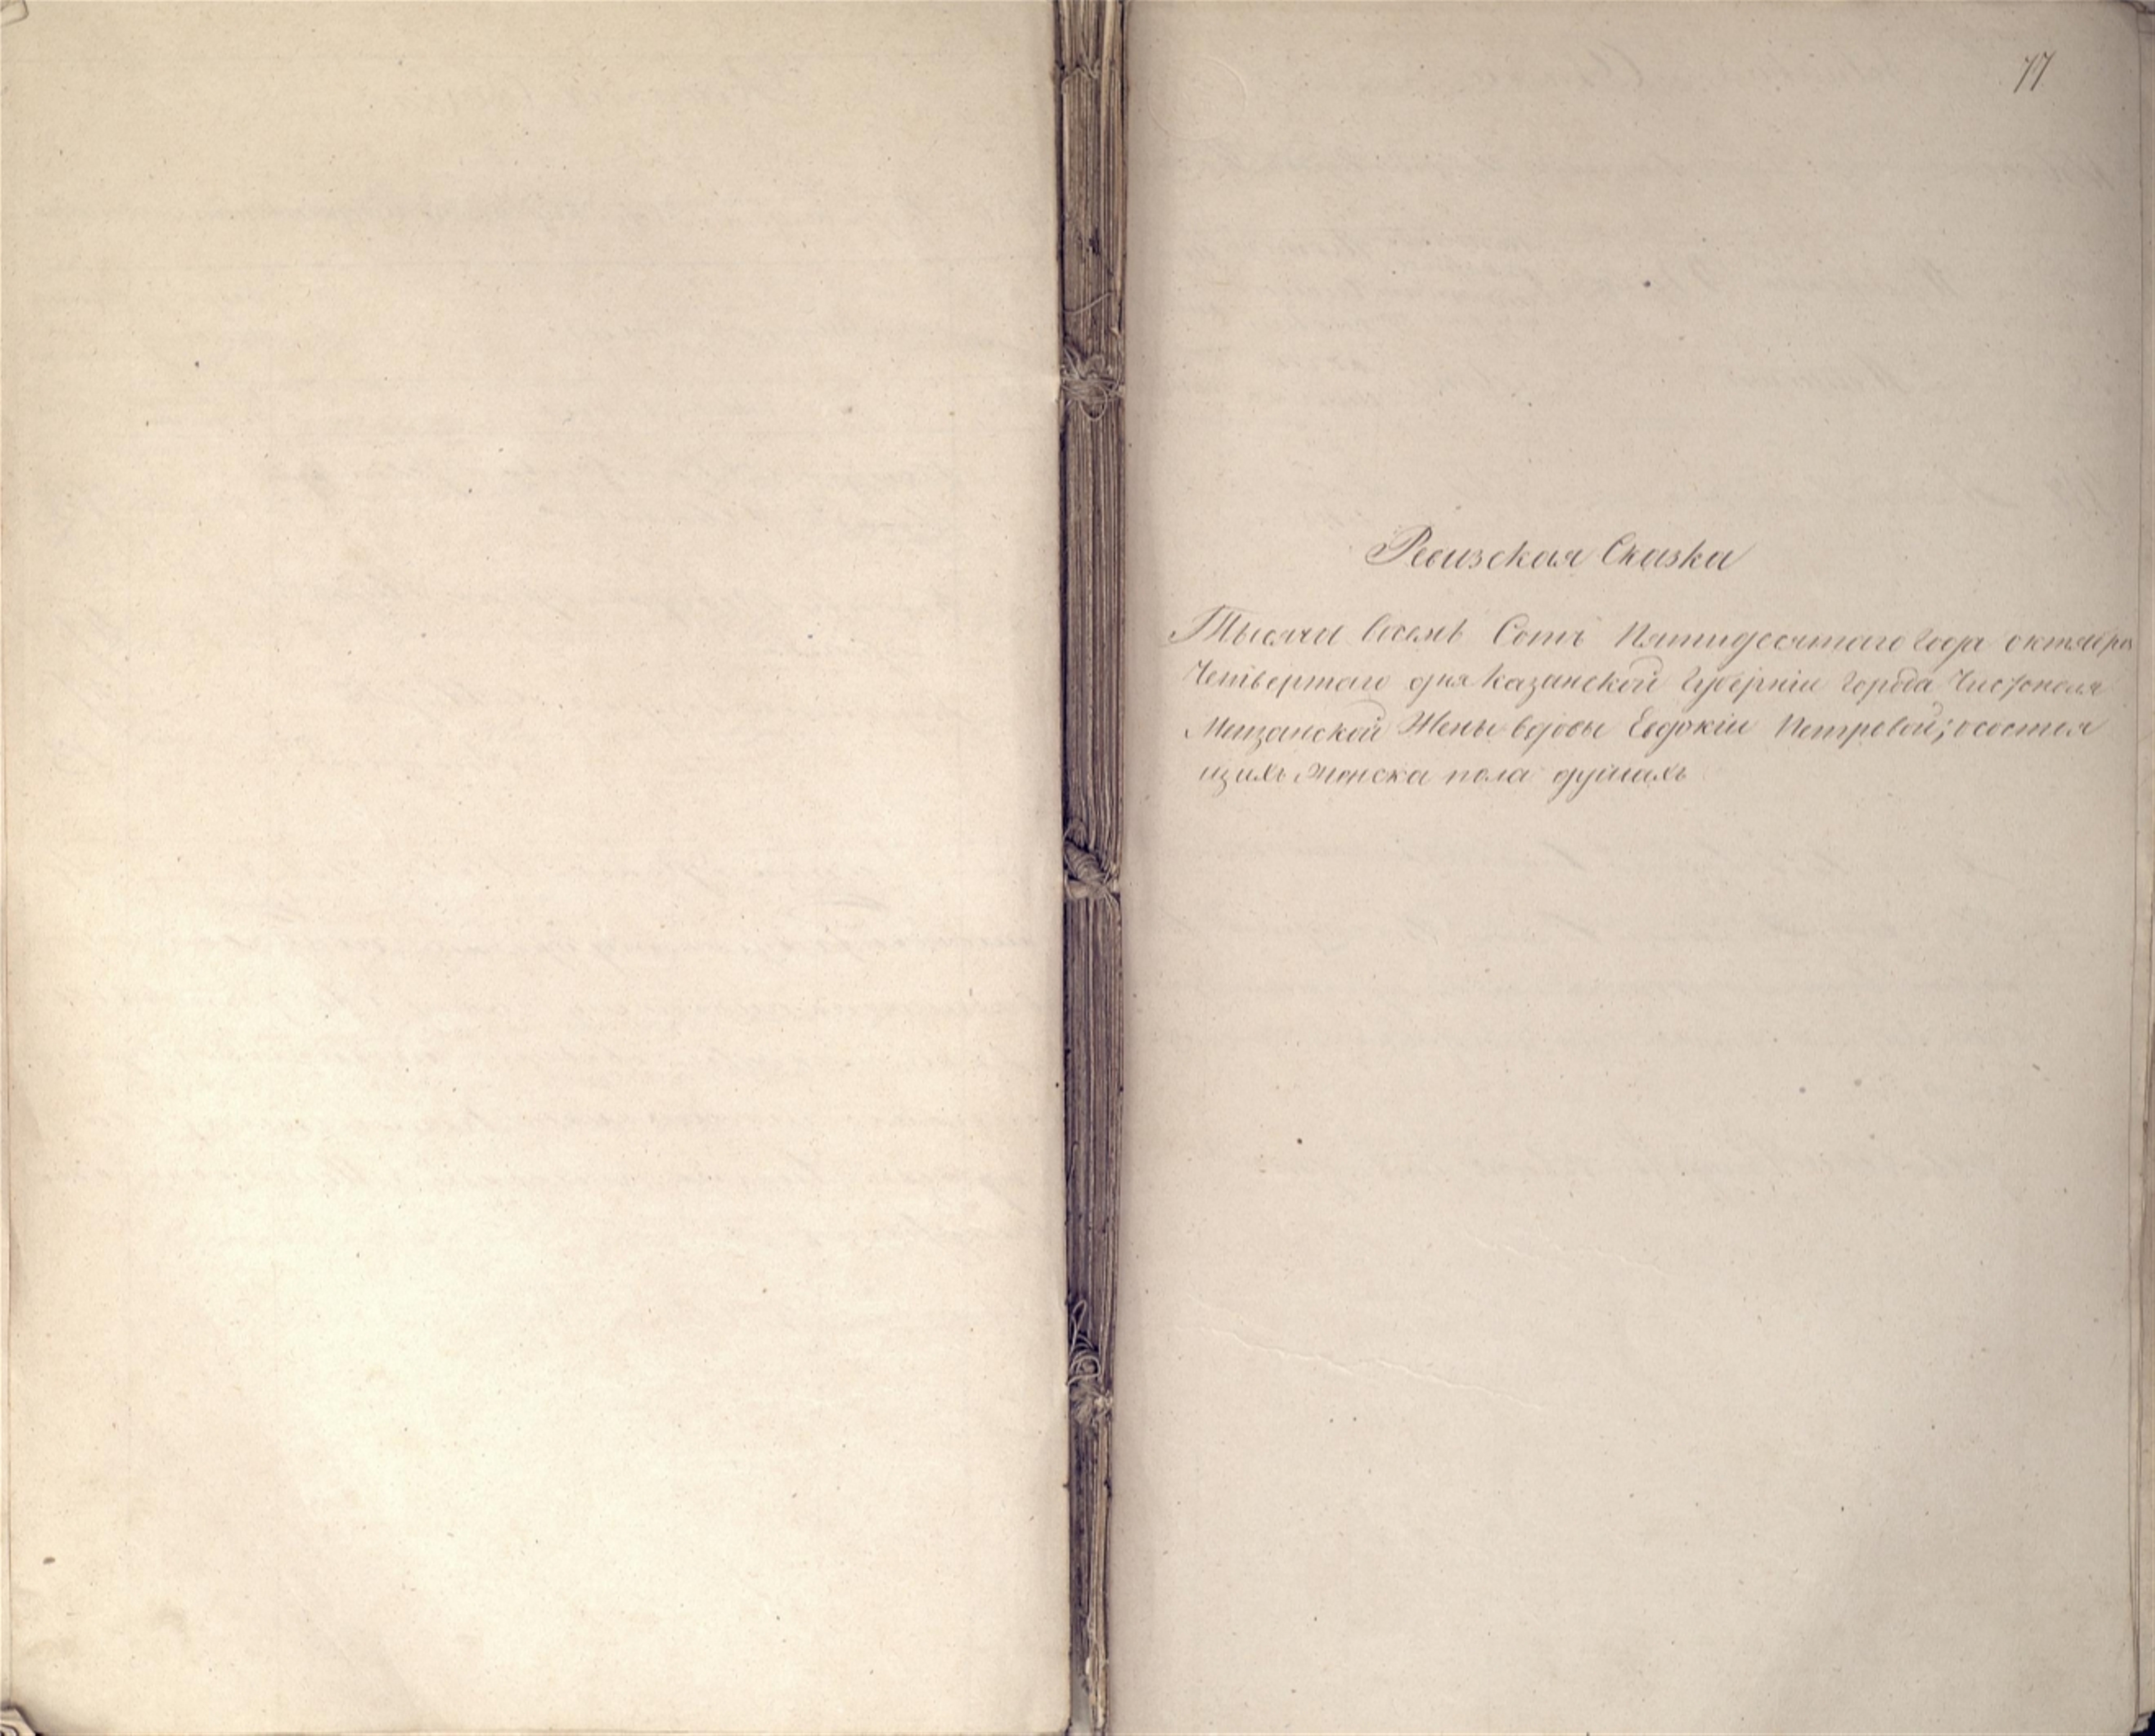 77
Ревизская Сказка
Тысяча восемь Сотъ Пятидесятаго года октября
Четвертаго дня Казанской Губерніи города Чистополя
Мещанской Жены вдовы Евдокіи Петровой; о состоя
щихъ Женска пола душахъ